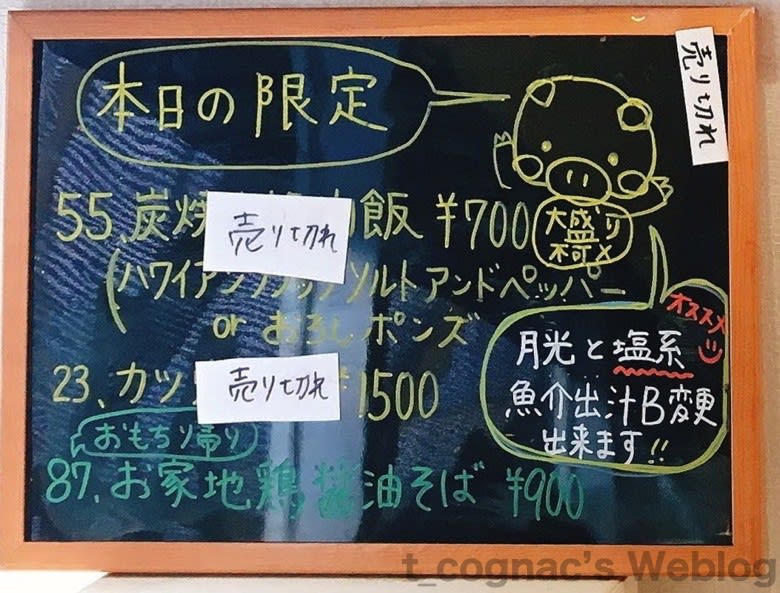 本日の限定
売り切れ
55、炭焼 飯 ¥700
売り切れ
大盛り
不可×
(ハワイアン ソルトアンドペッパー
or おろしポンズ
23、カツ 1500
売り切れ
オススメ
月光と塩系
魚介出汁B変更
出来ます!!
おもちり帰り
87、お家地鶏醤油そば ¥900
t_cognac's Weblog